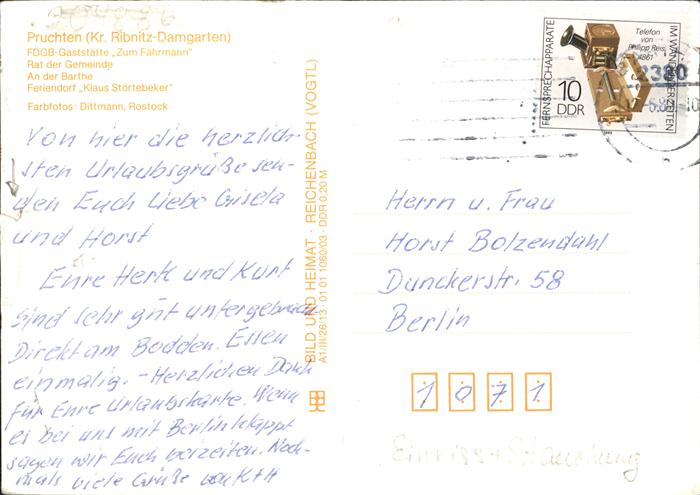 Pruchten (Kr. Ribnitz-Damgarten)
FDGB-Gaststätte „Zum Fährmann"
Rat der Gemeinde
An der Barthe
Feriendorf „Klaus Störtebeker"
Farbfotos: Dittmann, Rostock
Von hier die herzlich-
sten Urlaubsgrüße sen-
den Euch Liebe Gisela
und Horst
Eure Herta und Kurt
Sind sehr gut untergebracht
Direkt am Bodden. Essen
einmalig. - Herzlichen Dank
für Eure Urlaubskarte. Wenn
es bei uns mit Berlin klappt
sagen wir Euch beizeiten. Noch-
mals viele Grüße von K+H
BILD UND HEIMAT · REICHENBACH (VOGTL)
A1/III/26/13 · 01 01 1060/03 · DDR 0,20 M
FERNSPRECHAPPARATE
IM WANDEL DER ZEITEN
Telefon
von
Philipp Reis,
1861
10
DDR
2380
Herrn u. Frau
Horst Bolzendahl
Dunckerstr. 58
Berlin
1071
Einriss + Stauchung